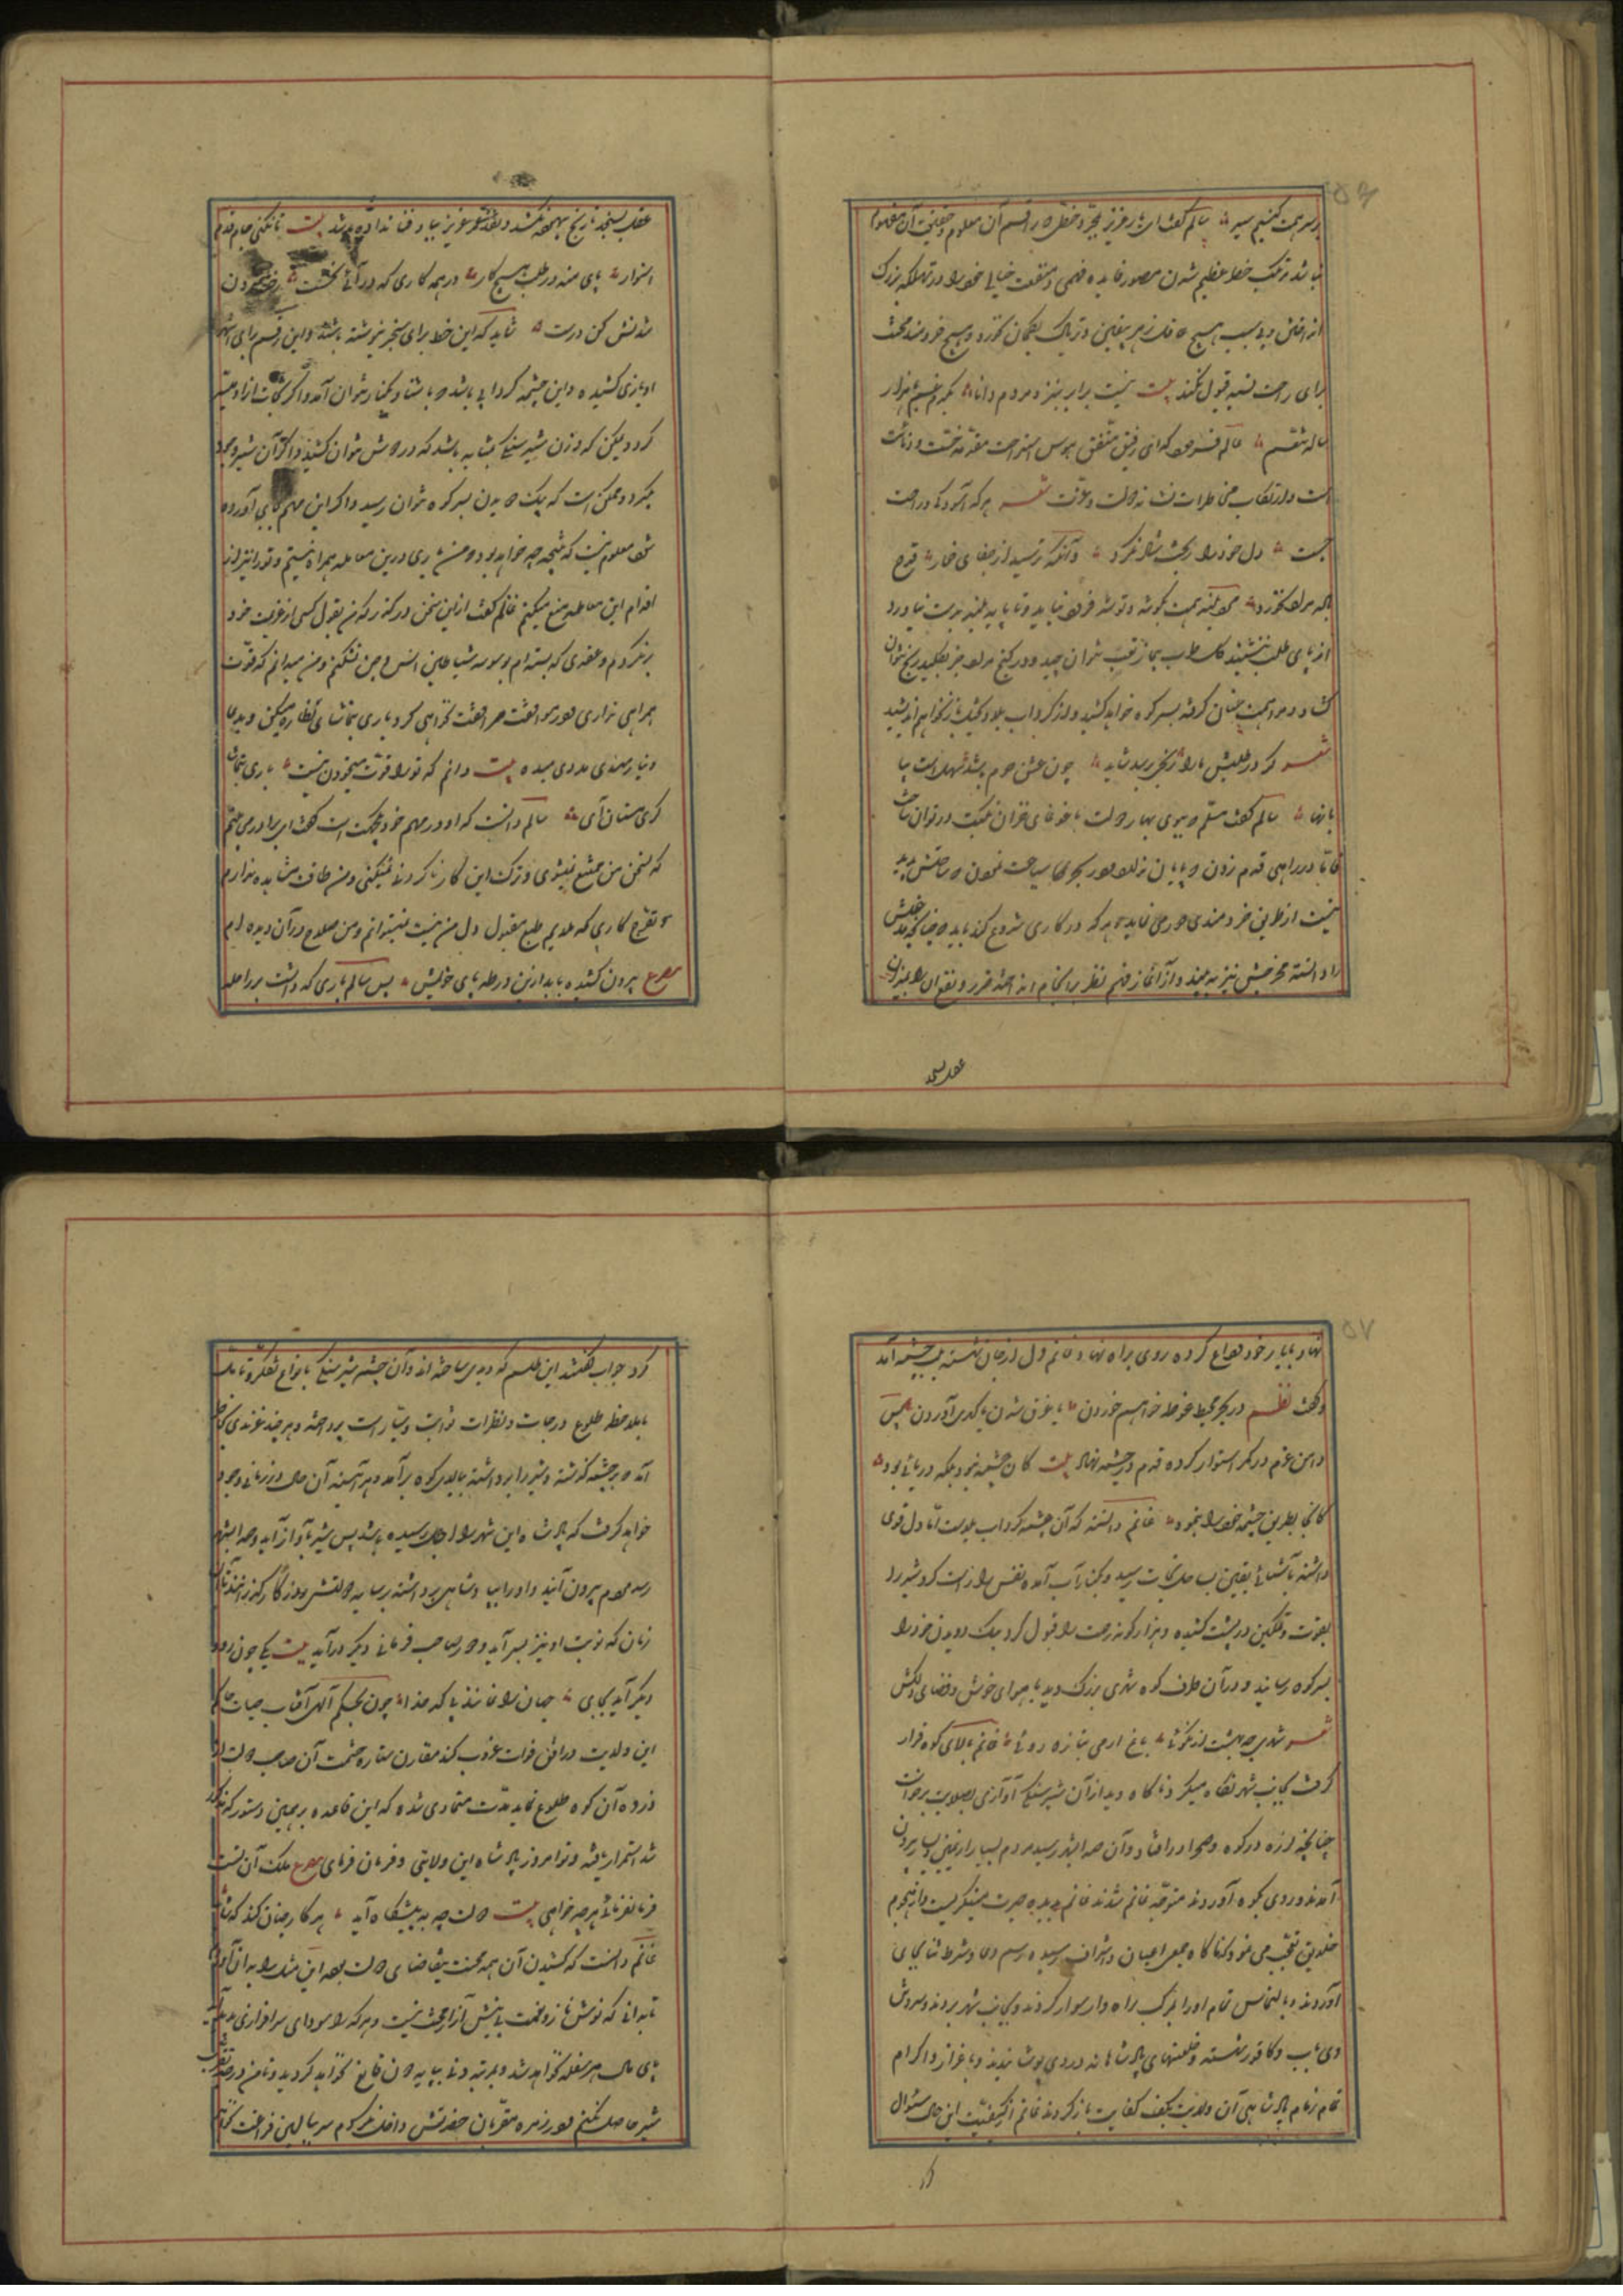 بر سر همت کنیم سیر سالم گفت ای یار عزیز بمجرد خطی که راقم آن معلوم و حقیقت آن مفهوم
نباشد مرتکب خطر عظیم شدن و بتصور فایده وهمی و منفعت خیالی خود را در تهلکه بزرگ
انداختن دلیل جهل است هیچ عاقل زهر بیقین و تریاک بگمان نخورد و هیچ خردمند محنت
برای راحت نسیه قبول نکند بیت نیست برابر بنزد مردم دانا یکدم غم با هزار
ساله تنعم غانم فرمود که ای رفیق متفق هوس استراحت مقدمه خست و دنائت
است و ارتکاب مخاطرات نشانه دولت و عزت شعر هرکه آسودگی و راحت
جست دل خود را بخت شاد نکرد وآنکه ترسید از جفای خمار قدح
باده مراد نخورد مرد بلند همت بگوشه و توشه فرو نیاید و تا پایه بلند بدست نیاورد
از پای طلب ننشیند گل طرب بی خار تعب نتوان چید و در گنج مراد جز بکلید رنج نتوان
گشاد و مرا همت عنان گرفته بسر کوه خواهد کشید و از گرداب بلا و کشیدن بار نخواهم اندیشید
شعر گر در طلبش ما را رنجی برسد شاید چون عشق حرم باشد سهل است بیا
بانها سالم گفت مسلم که ببوی بهار دولت با غوغای خزان نکبت در توان ساخت
فاما در راهی قدم زدن که پایان ندارد و در بحری سیاحت نمودن که ساحلش پدید
نیست از طریق خردمندی دور می نماید و هرکه در کاری شروع کند باید که چنانچه مدخلش
را دانسته مخرجش نیز به بیند و از آغاز رفتم نظر بر انجام انداخته ضرر و نفع آن را بمیزان
عقل سنجد
عقل بسنجد تا رنج بیهوده نکشد و نقد عمر عزیز بباد فنا نداده باشد بیت تا نکنی جای قدم
استوار پای منه در طلب هیچ کار در همه کاری که درآئی نخست رخنه بیرون
شدنش کن درست شاید که این خط برای سخریه نوشته باشند و این رقم برای لعب
و بازی کشیده و این چشمه گردابی باشد که باشنا بکنار نتوان آمد و اگر نجات ازو میسر
گردد یمکن که وزن شیر سنگی بمثابه باشد که در دوش نتوان کشید و اگر آن نیز وجود
گیرد و ممکن است که بیک دویدن بسر کوه نتوان رسید و اگر این مهم بجای آورده
شود معلوم نیست که نتیجه چه خواهد بود من باری درین معامله همراه نیستم و ترا نیز از
اقدام این معامله منع میکنم غانم گفت ازین سخن درگذر که من بقول کسی از عزیمت خود
برنگردم و عقدی که بسته ام بوسوسه شیاطین انس و جن نشکنم و من میدانم که قوت
همراهی نداری و در موافقت مرافقت نخواهی کرد باری بتماشای نظاره میکن و بدعا
و نیازمندی مددی میده بیت دانم که ترا قوت می خوردن نیست باری بتماشا
گه مستان آی سالم دانست که او در مهم خود یکجهت است گفت ای برادر می بینم
که بسخن من ممتنع نمیشوی و ترک این کار ناکردنی نمیکنی و من طاقت مشاهده ندارم
و تفرج کاری که ملایم طبع و مقبول دل من نیست نمیتوانم و من صلاح در آن دیده ام
مصرع بیرون کشید باید ازین ورطه پای خویش پس سالم باری که داشت بر راحله
نهاد و یار خود وداع کرده روی براه نهاد و غانم دل از جان شسته بلب چشمه آمد
و گفت نظم در بحر محیط غوطه خواهم خوردن یا غرق شدن یا گهری آوردن پس
دامن عزم در کمر استوار کرده قدم در چشمه نهاد بیت کان چشمه نبود بلکه دریائی بود
کانجا بطریق چشمه خود را بنمود غانم دانست که آن چشمه گرداب بلاست اما دل قوی
داشته بآشنائی یقین بساحل نجات رسید و بکنار آب آمده نفس را راست کرد و شیر را
بقوت و تمکین در پشت کشیده و هزار گونه زحمت را قبول کرد و بیک دویدن خود را
بسر کوه رسانید و در آن طرف کوه شهری بزرگ دید با هوای خوش و فضای دلکش
شعر شهری چو بهشت از نکوئی باغ ارمی بتازه روئی غانم بالای کوه قرار
گرفت بجانب شهر نگاه میکرد ناگاه دید از آن شیر سنگی آوازی بصلابت برخواست
چنانچه لرزه در کوه و صحرا در افتاد و آن صدا بشهر رسید مردم بسیار از یمین و یسار بیرون
آمدند و روی بکوه آوردند متوجه غانم شدند غانم بدیده حیرت مینگریست و از هجوم
خلایق تعجب می نمود که ناگاه جمعی اعیان و اشراف رسیده رسم دعا و شرط ثنا بجای
آوردند و بالتماس تمام او را بر مرکب راهوار سوار کردند و بجانب شهر بردند و سر و تنش
وی بآب و کافور بشسته و خلعتهای پادشاهانه در وی پوشانیدند و با عزاز و اکرام
تمام زمام پادشاهی آن ولایت بکف کفایت باز کردند غانم از کیفیت این حال سئوال
کرد
کرد جواب گفتند این طلسم که دیدی ساخته اند و آن چشمه و شیر سنگی بانواع تفکر و تامل
بملاحظه طلوع درجات و نظرات ثوابت و سیارات پرداخته و هر چند عزیزی بخاطر
آمده بر چشمه گذشته و شیر را برداشته ببالای کوه برآمد و هر آینه آن حال در زمانی وجود
خواهد گرفت که پادشاه این شهر را اجل رسیده باشد پس شیر بآواز آید و صدا بشهر
رسد مردم بیرون آیند و او را بپادشاهی برداشته بسایه دولتش روزگار گذرانند تا آن
زمان که نوبت او نیز بسر آید و دیگر صاحب فرمانی دیگر درآید بیت یکی چون رود
دیگر آید بجای جهان را نمانند بی کدخدا و چون بحکم الهی آفتاب حیات حاکم
این ولایت در افق فوات غروب کند مقارن ستاره حشمت آن صاحب دولت از
ذروه آن کوه طلوع نماید مدت متمادی شده که این قاعده بر همین دستور که مذکور
شد استمرار یافته و تو امروز پادشاه این ولایتی و فرمان فرمای مصرع ملک آن تست
فرمان فرمای هر چه خواهی بیت دولت چو به پیشگاه آید هر کار چنان کند که شاید
غانم دانست که کشیدن آن همه محنت بتقاضای دولت بوده این مثل را بدان آوردم
تا بدانی که نوش ناز و نعمت بی نیش آزار محنت نیست و هرکه را سودای سرافرازی پدید آید
پای مال هر سفله نخواهد شد و بمرتبه دنی و پایه دون قانع نخواهد گردید و تا من درجه تقرب
شیر حاصل نکنم و در زمره مقربان حضرتش داخل نگردم سر ببالین فراغت نخواهم